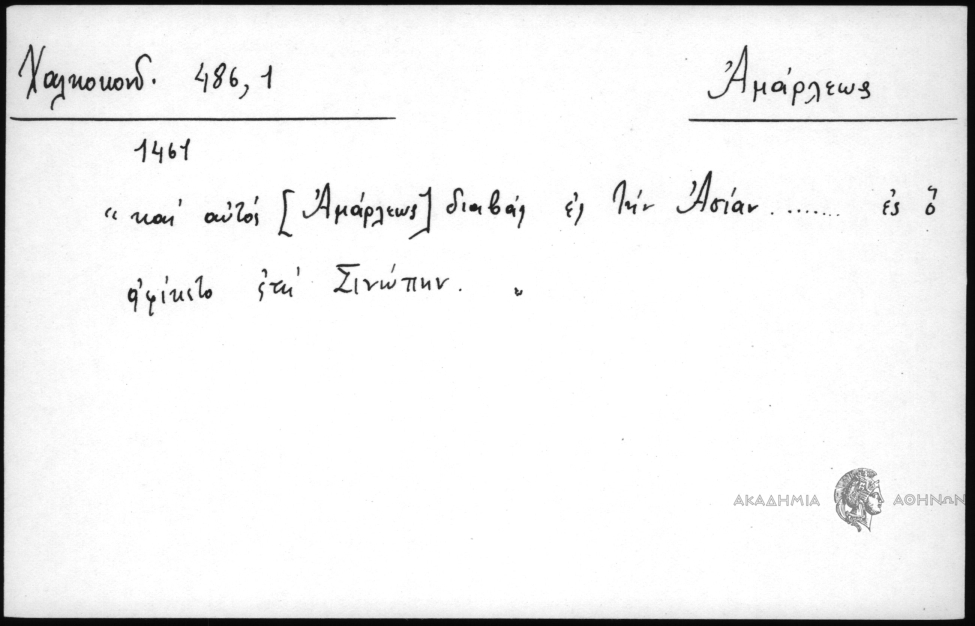 Χαλκοκονδ. 486,1
Ἀμάρλεως
1461
“ καὶ αὐτός [Ἀμάρλεως] διαβάς ἐς τήν Ἀσίαν ........ ἐς ὅ
ἀφίκετο ἐπὶ Σινώπην. „
ΑΚΑΔΗΜΙΑ ΑΘΗΝΩΝ